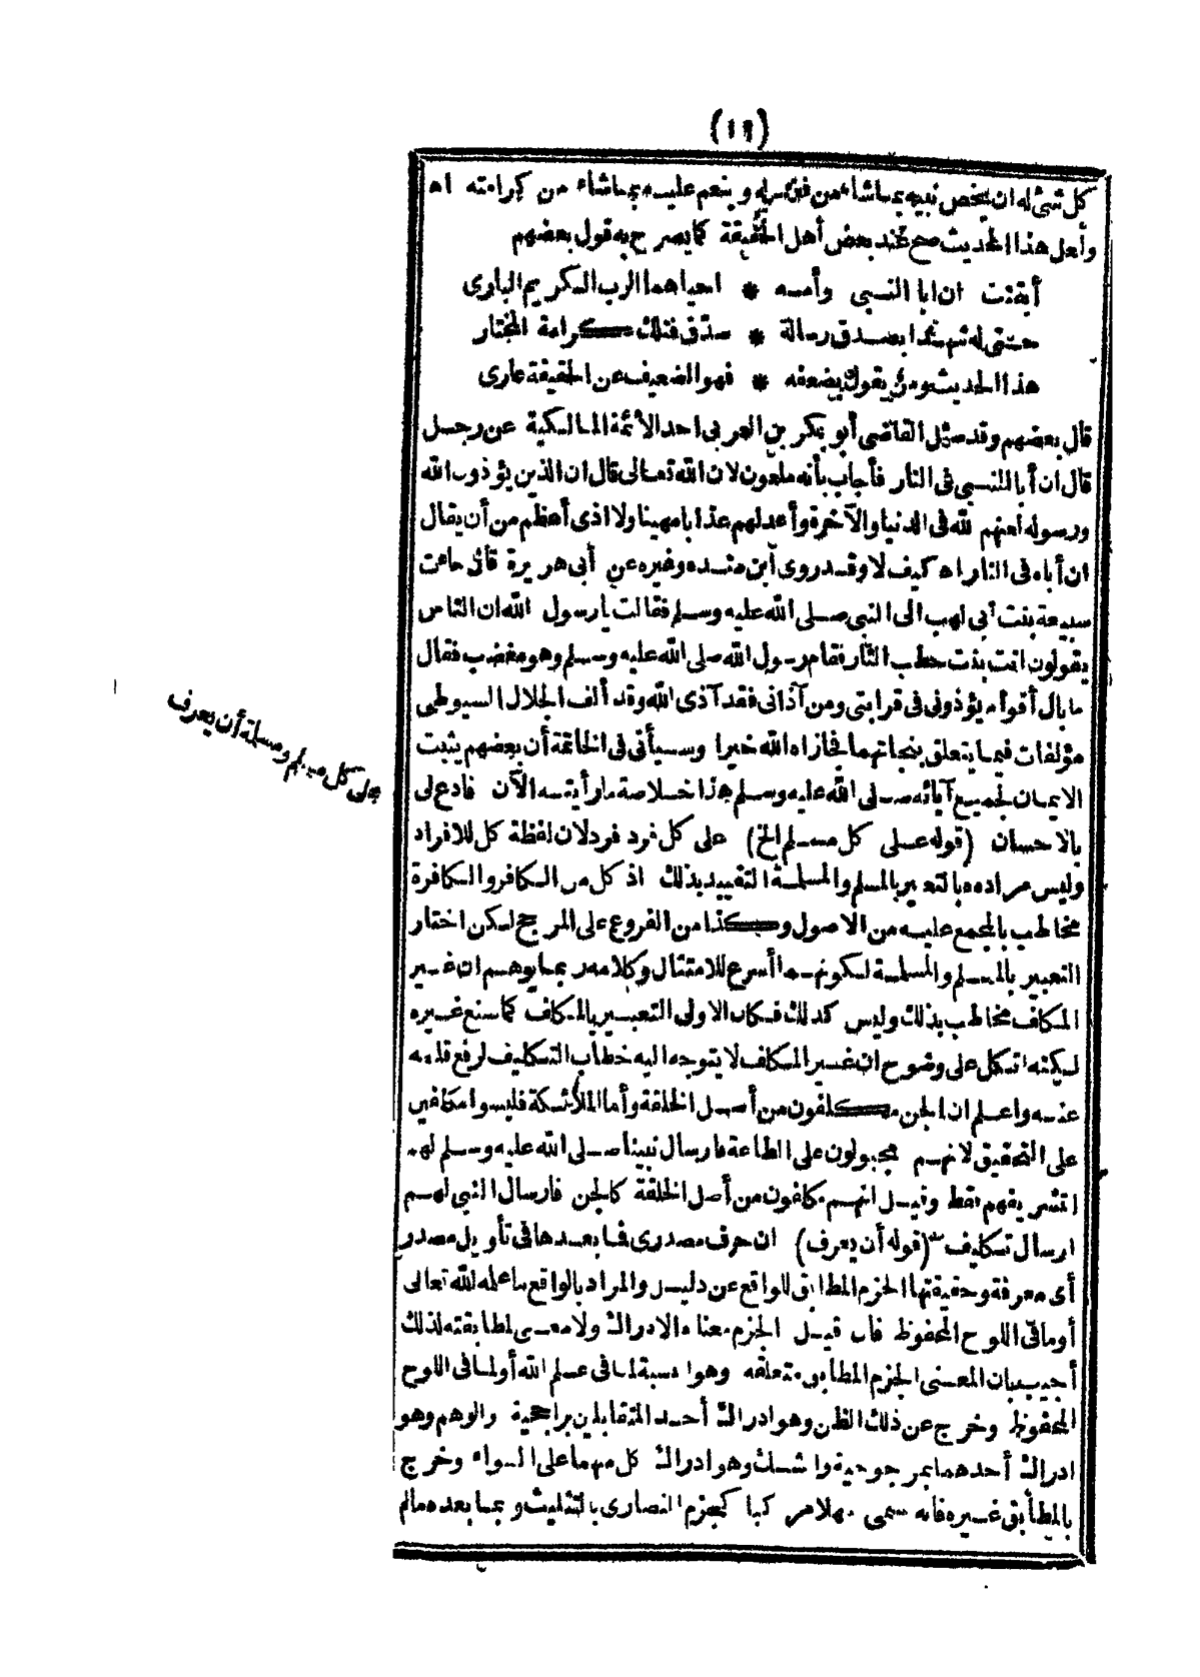 (١٩)
كل شئ له ان يخص نبيه بما شاء من فضله وينعم عليه بما شاء من كرامته اه
ولعل هذا الحديث صح عند بعض أهل الحقيقة كما يصرح به قول بعضهم
أيقنت ان ابا النبي وأمه * احياهما الرب الكريم البارى
حتى له شهدا بصدق رسالة * صدّق فتلك كرامة المختار
هذا الحديث ومن يقول بضعفه * فهو الضعيف عن الحقيقة عارى
قال بعضهم وقد سئل القاضى أبو بكر بن العربى احد الأئمة المالكية عن رجل
قال ان أبا النبي فى النار فأجاب بأنه ملعون لان الله تعالى قال ان الذين يؤذون الله
ورسوله لعنهم الله فى الدنيا والآخرة وأعد لهم عذابا مهينا ولا اذى أعظم من أن يقال
ان أباه فى النار اه كيف لا وقد روى ابن منده وغيره عن أبى هريرة قال جاءت
سبيعة بنت أبى لهب الى النبى صلى الله عليه وسلم فقالت يا رسول الله ان الناس
يقولون انت بنت حطب النار فقام رسول الله صلى الله عليه وسلم وهو مغضب فقال
ما بال أقوام يؤذونى فى قرابتى ومن آذانى فقد آذى الله وقد ألف الجلال السيوطى
مؤلفات فيما يتعلق بنجاتهما فجازاه الله خيرا وسيأتى فى الخاتمة أن بعضهم يثبت
الايمان لجميع آبائه صلى الله عليه وسلم هذا خلاصة ما رأيته الآن فادع لى
بالاحسان (قوله على كل مسلم الخ) على كل فرد فرد لان لفظة كل للافراد
وليس مراده بالتعبير بالمسلم والمسلمة التقييد بذلك اذ كل من الكافر والكافرة
مخاطب بالمجمع عليه من الاصول وكذا من الفروع على المرجح لكن اختار
التعبير بالمسلم والمسلمة لكونهما أسرع للامتثال وكلامه ربما يوهم ان غير
المكلف مخاطب بذلك وليس كذلك فكان الاولى التعبير بالمكلف كما صنع غيره
لكنه اتكل على وضوح ان غير المكلف لا يتوجه اليه خطاب التكليف لرفع قلمه
عنه واعلم ان الجن مكلفون من أصل الخلقة وأما الملائكة فليسوا مكلفين
على التحقيق لانهم مجبولون على الطاعة فارسال نبينا صلى الله عليه وسلم لهم
لتشريفهم فقط وقيل انهم مكلفون من أصل الخلقة كالجن فارسال النبى لهم
ارسال تكليف (قوله أن يعرف) ان حرف مصدرى فما بعدها فى تأويل مصدر
أى معرفة وحقيقتها الجزم المطابق للواقع عن دليل والمراد بالواقع ما علمه الله تعالى
أو ما فى اللوح المحفوظ فان قيل الجزم معناه الادراك ولا معنى لمطابقته لذلك
أجيب بان المعنى الجزم المطابق متعلقه وهو النسبة لما فى علم الله أو لما فى اللوح
المحفوظ وخرج عن ذلك الظن وهو ادراك أحد المتقابلين براجحية والوهم وهو
ادراك أحدهما بمرجوحية والشك وهو ادراك كل منهما على السواء وخرج
بالمطابق غيره فانه سمى جهلا مركبا كجزم النصارى بالتثليث وبما بعده ما لم
على كل مسلم ومسلمة أن يعرف